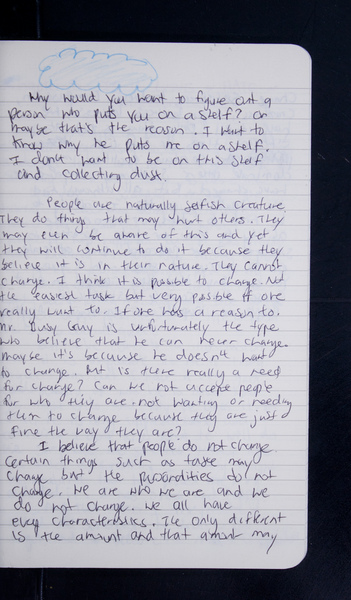 Why would you want to figure out a
person who puts you on a shelf? or
maybe that's the reason. I want to
know why he puts me on a shelf.
I don't want to be on this shelf
and collecting dust.
People are naturally selfish creature.
They do things that may hurt others. They
may even be aware of this and yet
they will continue to do it because they
believe it is in their nature. They cannot
change. I think it is possible to change. Not
the easiest task but very possible if one
really want to. If one has a reason to.
Mr. Busy Guy is unfortunately the type
who believe that he can never change.
maybe it's because he doesn't want
to change. But is there really a need
for change? Can we not accept people
for who they are. not wanting or needing
them to change because they are just
fine the way they are?
I believe that people do not change.
Certain things such as taste may
change but the personalities do not
change. we are who we are and we
do not change. we all have
every characteristics. The only different
is the amount and that amount may